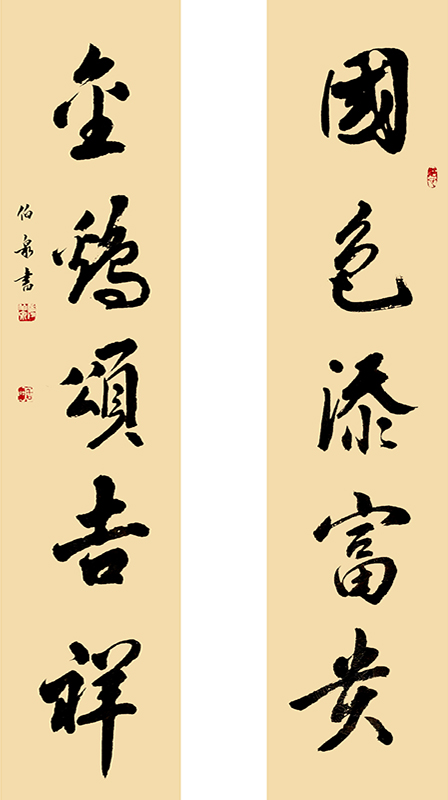 國色添富貴
金鷄頌吉祥
伯泉書